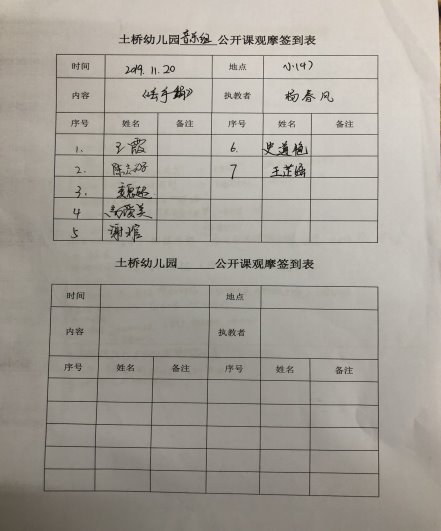 土桥幼儿园音乐组公开课观摩签到表
时间 2019.11.20 地点 小(4)
内容 《丢手绢》 执教者 杨春风
序号 姓名 备注 序号 姓名 备注
1. 王霞 6. 史道艳
2. 陈 7 王芷涵
3.
4 爱美
5 谢
土桥幼儿园______公开课观摩签到表
时间 地点
内容 执教者
序号 姓名 备注 序号 姓名 备注